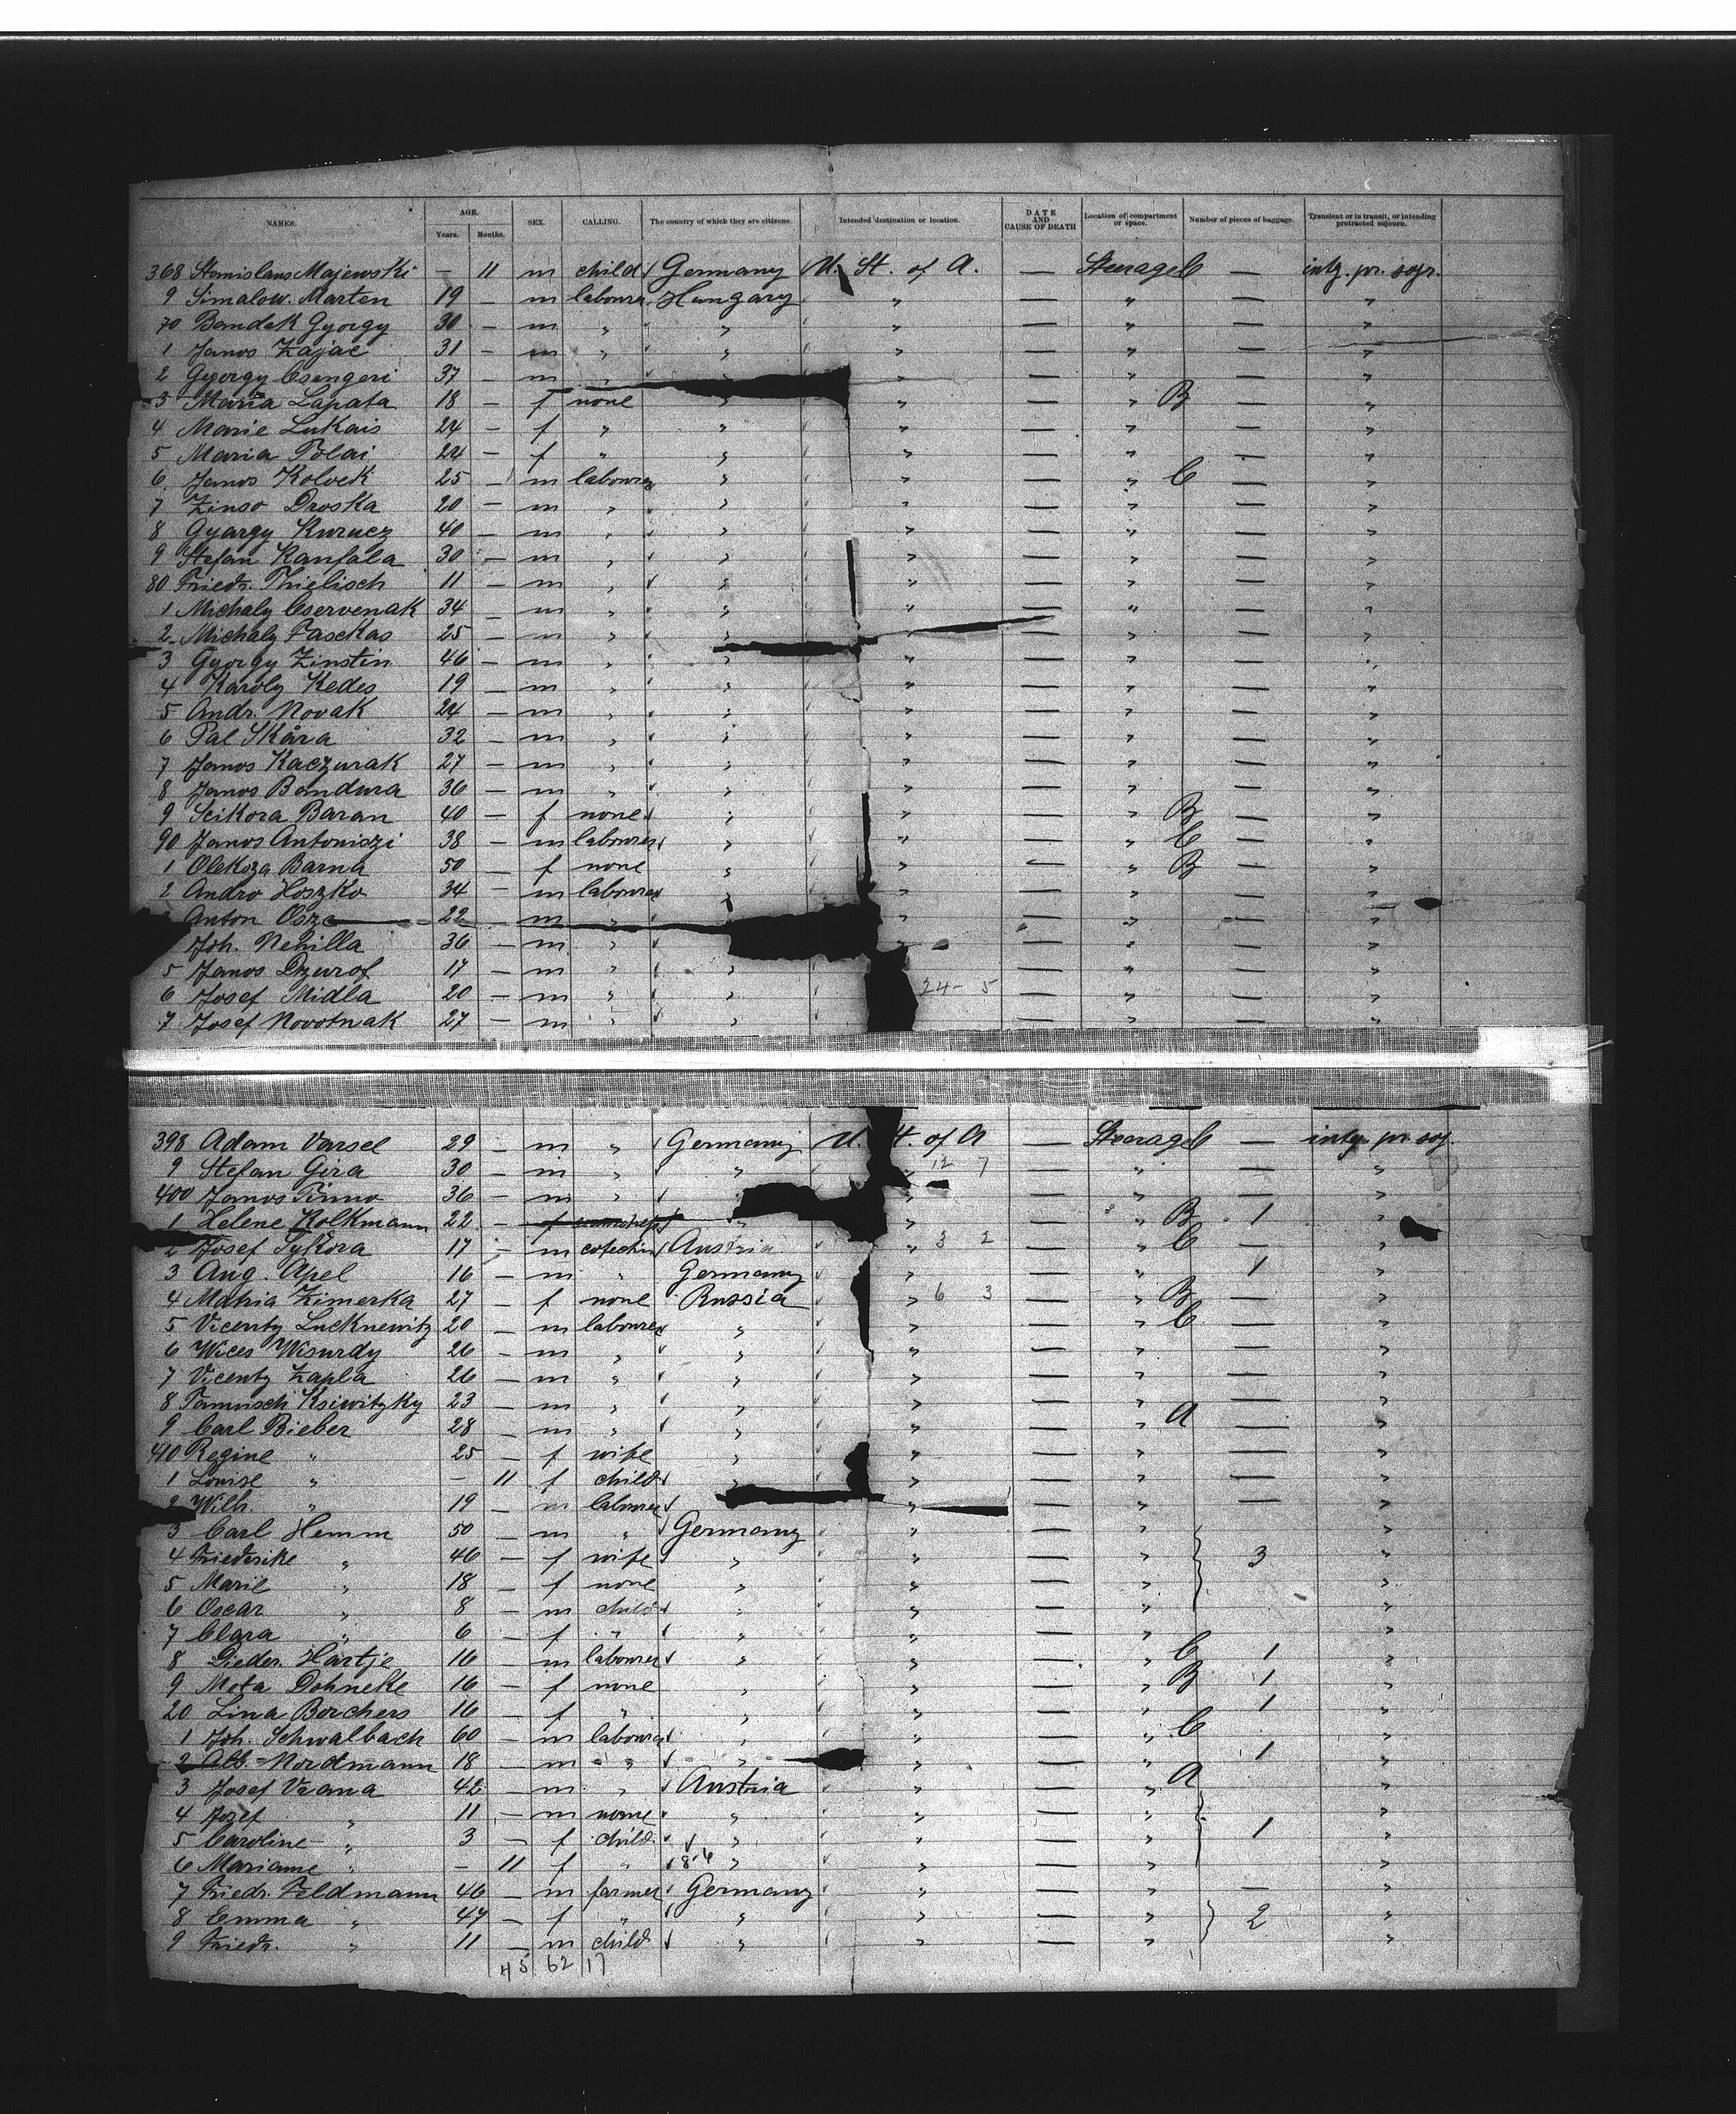 NAMES. AGE. SEX. CALLING. The country of which they are citizens. Intended destination or location. DATE AND CAUSE OF DEATH Location of compartment or space. Number of pieces of baggage. Transient or in transit, or intending protracted sojourn.
Years. Months.
368 Stanislaus Majewski — 11 m child Germany U. St. of A. — Steerage C — intg. pr. sojr.
9 Simalow. Marten 19 — m labourer Hungary " — " — "
70 Bandak Gyorgy 30 — m " " " — " — "
1 Janos Zajac 31 — m " " " — " — "
2 Gyorgy Csengeri 37 — m " — " — "
3 Maria Lapata 18 — f none " " — " B — "
4 Marie Lukais 24 — f " " " — " — "
5 Maria Tolai 24 — f " " " — " — "
6 Janos Kolvek 25 — m labourer " " — " C — "
7 Zinso Droska 20 — m " " " — " — "
8 Gyorgy Kurucz 40 — m " " " — " — "
9 Stefan Kanfala 30 — m " " " — " — "
80 Friedr. Thielisch 11 — m " " " — " — "
1 Michaly Cservenak 34 — m " " " — " — "
2 Michaly Fasckas 25 — m " " " — " — "
3 Gyorgy Zinstin 46 — m " " " — " — "
4 Karoly Kedes 19 — m " " " — " — "
5 Andr. Novak 24 — m " " " — " — "
6 Pal Skåra 32 — m " " " — " — "
7 Janos Kaczurak 27 — m " " " — " — "
8 Janos Bandura 36 — m " " " — " — "
9 Scikora Baran 40 — f none " " — " B — "
90 Janos Antoniszi 38 — m labourer " " — " C — "
1 Oleksza Barna 50 — f none " " — " B — "
2 Andro Hoszko 34 — m labourer " " — " — "
Anton 22 — m " " — " — "
Joh. Nehilla 36 — m " " — " — "
5 Janos Dzurof 17 — m " " — " — "
6 Josef Midla 20 — m " " 24 - 5 — " — "
7 Josef Novotnak 27 — m " " — " — "
398 Adam Varsel 29 — m " Germany U. St. of A — Steerage C — intg. pr. soj.
9 Stefan Gira 30 — m " " " 12 7 — " — "
400 Janos Timno 36 — m " " — " — "
1 Helene Kolkmann 22 — f " " — " B 1 "
2 Josef Sykora 17 — m Austria " 3 2 — " C — "
3 Aug. Apel 16 — m " Germany " — " 1 "
4 Maria Zimerka 27 — f none Russia " 6 3 — " B — "
5 Vicenty Lucknewitz 20 — m labourer " " — " C — "
6 Wices Wisurdy 26 — m " " " — " — "
7 Vicenty Zapla 26 — m " " " — " — "
8 Ksiwitzky 23 — m " " " — " — "
9 Carl Bieber 28 — m " " " — " A — "
410 Regine " 25 — f wife " " — " — "
1 Louise " — 11 f child " " — " — "
2 Wilh. " 19 — m labourer " — " — "
3 Carl Hemm 50 — m " Germany " — " "
4 Friederike " 46 — f wife " " — " 3 "
5 Marie " 18 — f none " " — " "
6 Oscar " 8 — m child " " — " "
7 Clara " 6 — f " " " — " "
8 Dieder. Hartje 16 — m labourer " " — " C 1 "
9 Meta Dohneke 16 — f none " " — " B 1 "
20 Lina Borchers 16 — f " " " — " 1 "
1 Joh. Schwalbach 60 — m labourer " " — " C "
2 Alb. Nordtmann 18 — m " " — " 1 "
3 Josef Vrana 42 — m " Austria " — " A "
4 Jozef " 11 — m none " " — " "
5 Caroline " 3 — f child " " — " 1 "
6 Marianne " — 11 f " 8-6 " " — " "
7 Friedr. Feldmann 46 — m farmer Germany " — " — "
8 Emma " 47 — f " " " — " 2 "
9 Friedr. " 11 — m child " " — " "
45 62 17